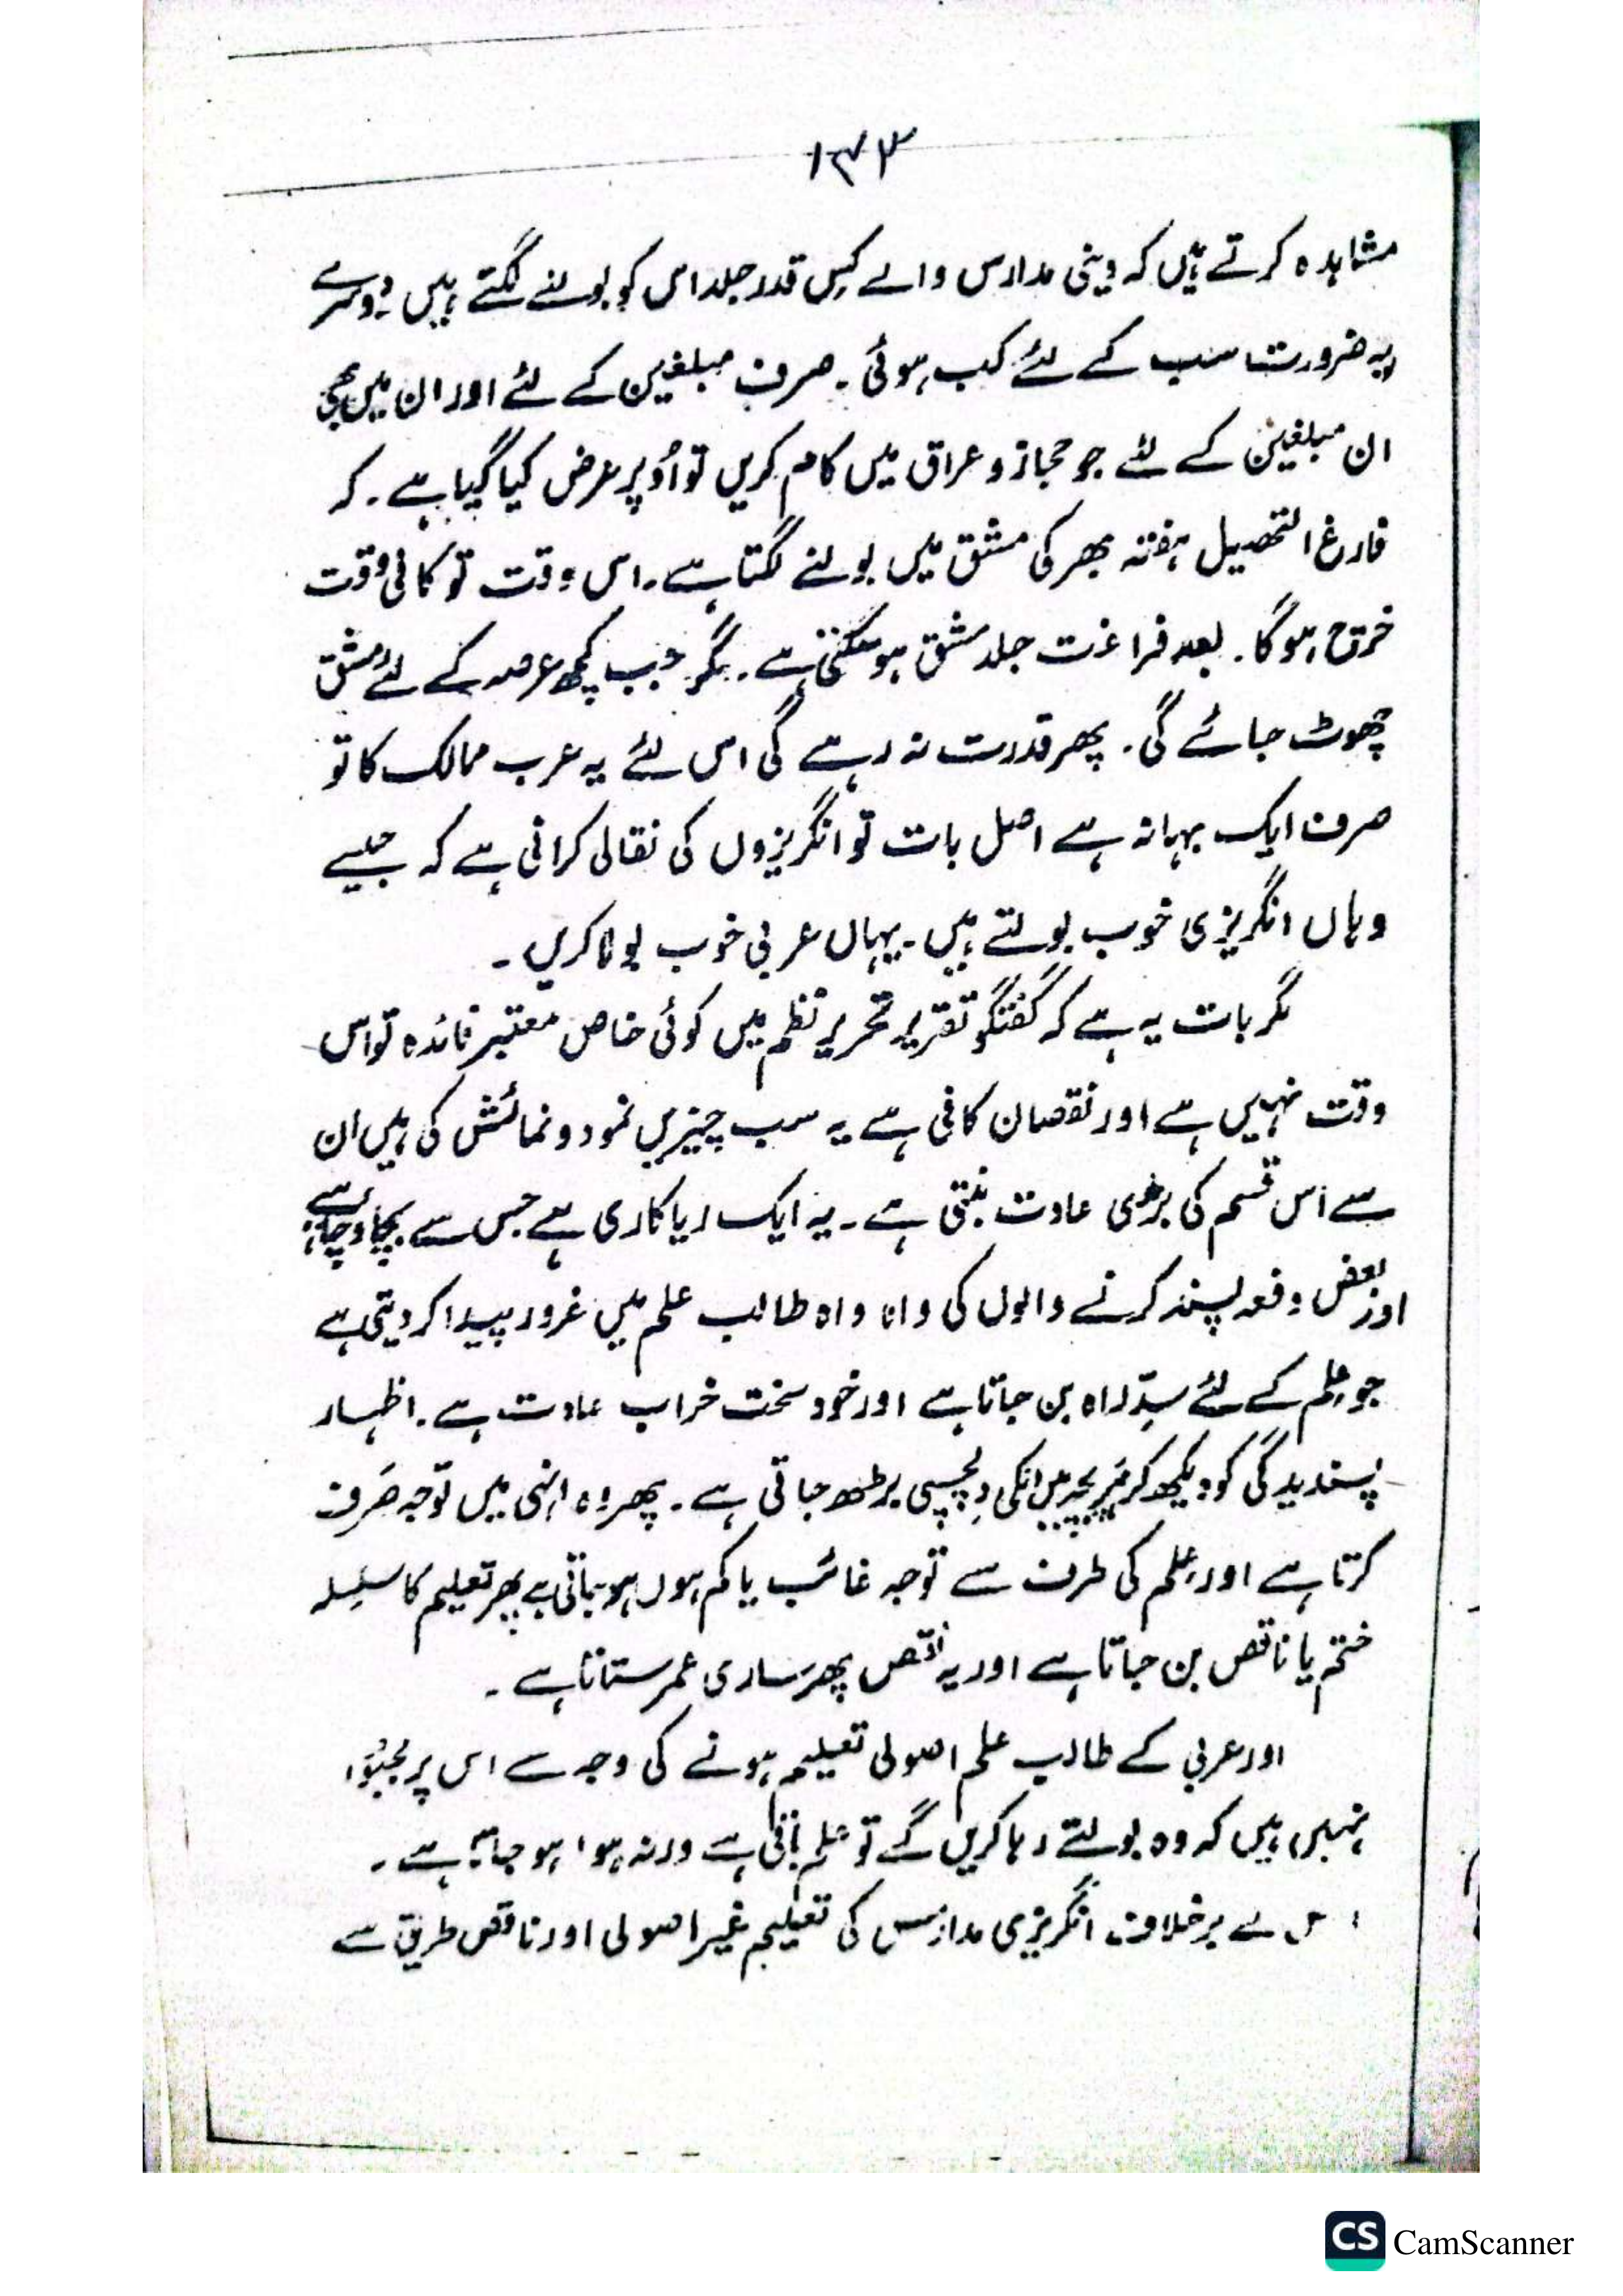 ۱۷۳
مشاہدہ کرتے ہیں کہ دینی مدارس والے کس قدر جلد اس کو بولنے لگتے ہیں دوسرے
یہ ضرورت سب کے لئے کب ہوئی ۔ صرف مبلغین کے لئے اور ان میں بھی
ان مبلغین کے لئے جو حجاز و عراق میں کام کریں تو اُوپر عرض کیا گیا ہے ۔ کہ
فارغ التحصیل ہفتہ بھر کی مشق میں بولنے لگتا ہے ۔ اس وقت تو کافی وقت
خرچ ہوگا ۔ بعد فراغت جلد مشق ہو سکتی ہے ۔ مگر جب کچھ عرصہ کے لئے مشق
چھوٹ جائے گی ۔ پھر قدرت نہ رہے گی اس لئے یہ عرب ممالک کا تو
صرف ایک بہانہ ہے اصل بات تو انگریزوں کی نقالی کرانی ہے کہ جیسے
وہاں انگریزی خوب بولتے ہیں ۔ یہاں عربی خوب بولا کریں ۔
مگر بات یہ ہے کہ گفتگو تقریر تحریر نظم میں کوئی خاص معتبر فائدہ تو اس
وقت نہیں ہے اور نقصان کافی ہے یہ سب چیزیں نمود و نمائش کی ہیں ان
سے اس قسم کی بڑی عادت بنتی ہے ۔ یہ ایک ریاکاری ہے جس سے بچاؤ چاہئے
اور بعض دفعہ پسند کرنے والوں کی واہ واہ طالب علم میں غرور پیدا کر دیتی ہے
جو علم کے لئے سدِّ راہ بن جاتا ہے اور خود سخت خراب عادت ہے ۔ اظہار
پسندیدگی کو دیکھ کر میں انکی دلچسپی بڑھ جاتی ہے ۔ پھر وہ انہی میں توجہ صَرف
کرتا ہے اور علم کی طرف سے توجہ غائب یا کم ہو جاتی ہے پھر تعلیم کا سلسلہ
ختم یا ناقص بن جاتا ہے اور یہ نقص پھر ساری عمر ستاتا ہے ۔
اور عربی کے طالب علم اصولی تعلیم ہونے کی وجہ سے اس پر مجبور
نہیں ہیں کہ وہ بولتے رہا کریں گے تو علم باقی ہے ورنہ ہوا ہو جاتا ہے ۔
اس کے برخلاف انگریزی مدارس کی تعلیم غیر اصولی اور ناقص طریق سے
CS CamScanner